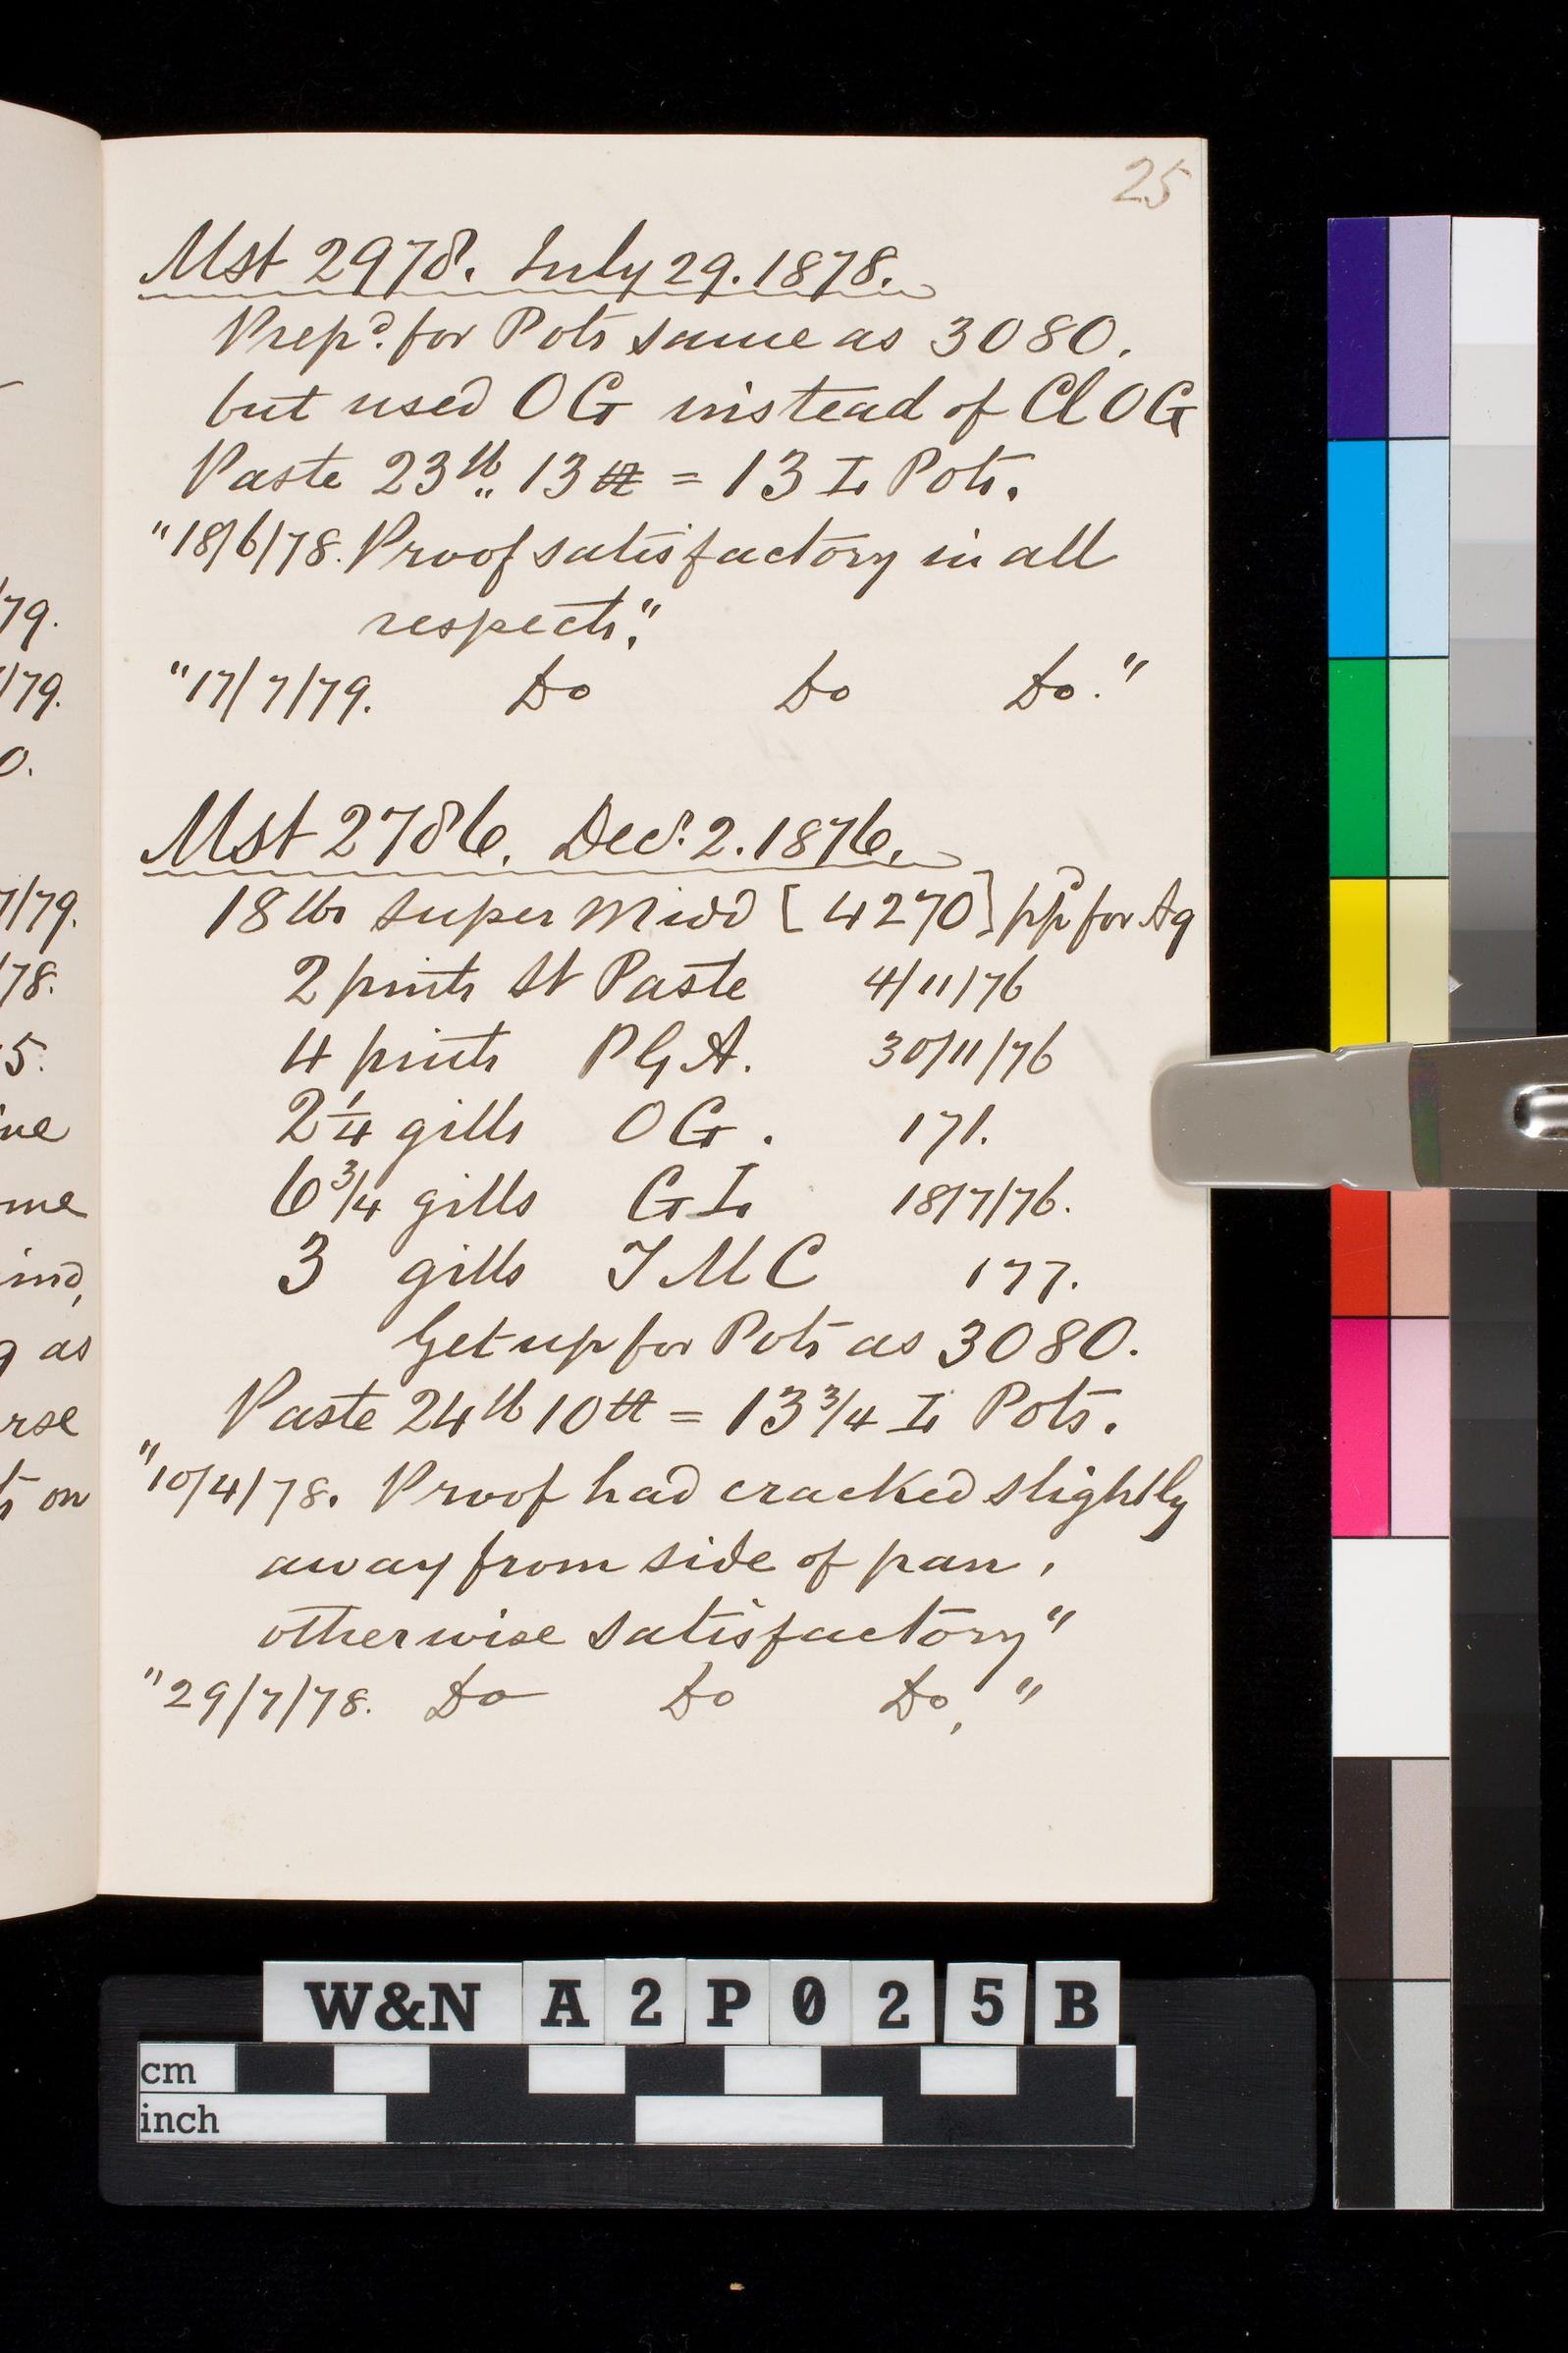 25
Mst 2978. July 29. 1878.
Prepd. for Pots same as 3080.
but used OG instead of Cl OG
Paste 23 lb.. 13 = 13 L Pots.
"18/6/78. Proof satisfactory in all
respects."
"17/7/79. Do Do Do."
Mst 2786. Decr. 2. 1876.
18 lbs Super Midd [4270] ppd for Aq
2 pints St Paste 4/11/76
4 pints PGA. 30/11/76
2 1/4 gills OG. 171.
6 3/4 gills GL 18/7/76.
3 gills JMC 177.
Get up for Pots as 3080.
Paste 24 lb 10 = 13 3/4 L Pots.
"10/4/78. Proof had cracked slightly
away from side of pan,
otherwise satisfactory"
"29/7/78. Do Do Do,"
/79.
/79.
0.
7/79.
/78.
5.
me
ind,
as
rse
on
W&N A2P025B
cm
inch